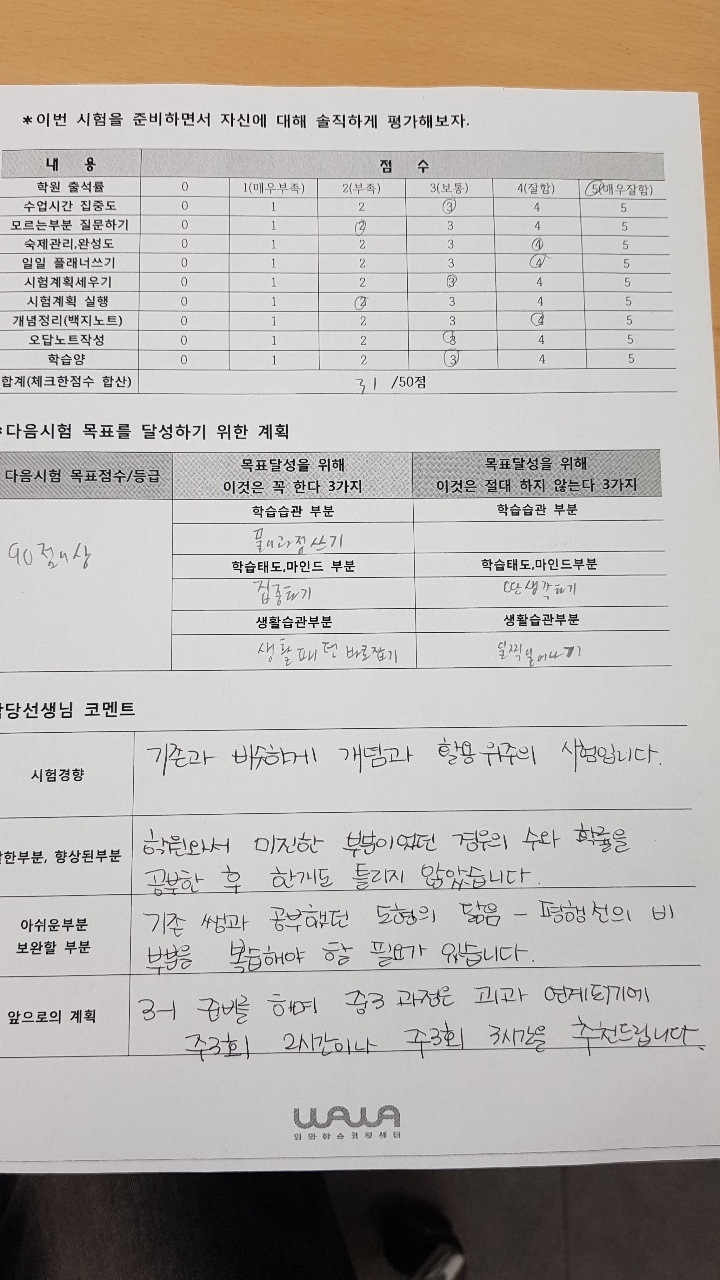 *이번 시험을 준비하면서 자신에 대해 솔직하게 평가해보자.
내 용 점 수
학원 출석률 0 1(매우부족) 2(부족) 3(보통) 4(잘함) 5(매우잘함)
수업시간 집중도 0 1 2 3 4 5
모르는부분 질문하기 0 1 2 3 4 5
숙제관리,완성도 0 1 2 3 4 5
일일 플래너쓰기 0 1 2 3 4 5
시험계획세우기 0 1 2 3 4 5
시험계획 실행 0 1 2 3 4 5
개념정리(백지노트) 0 1 2 3 4 5
오답노트작성 0 1 2 3 4 5
학습양 0 1 2 3 4 5
합계(체크한점수 합산) 31 /50점
*다음시험 목표를 달성하기 위한 계획
다음시험 목표점수/등급
목표달성을 위해
이것은 꼭 한다 3가지
목표달성을 위해
이것은 절대 하지 않는다 3가지
90점이상
학습습관 부분 학습습관 부분
풀이과정쓰기
학습태도,마인드 부분 학습태도,마인드부분
집중하기 딴생각하기
생활습관부분 생활습관부분
생활패턴 바로잡기 일찍일어나기
담당선생님 코멘트
시험경향
기존과 비슷하게 개념과 활용위주의 시험입니다.
잘한부분, 향상된부분
학원와서 미진한 부분이였던 경우의 수와 확률을
공부한 후 한개도 틀리지 않았습니다.
아쉬운부분
보완할 부분
기존 쌤과 공부했던 도형의 닮음 - 평행선의 비
부분을 복습해야 할 필요가 있습니다.
앞으로의 계획
3-1 준비를 하며 중3 과정은 고과 연계되기에
주3회 2시간이나 주3회 3시간을 추천드립니다.
WAWA
와와학습코칭센터